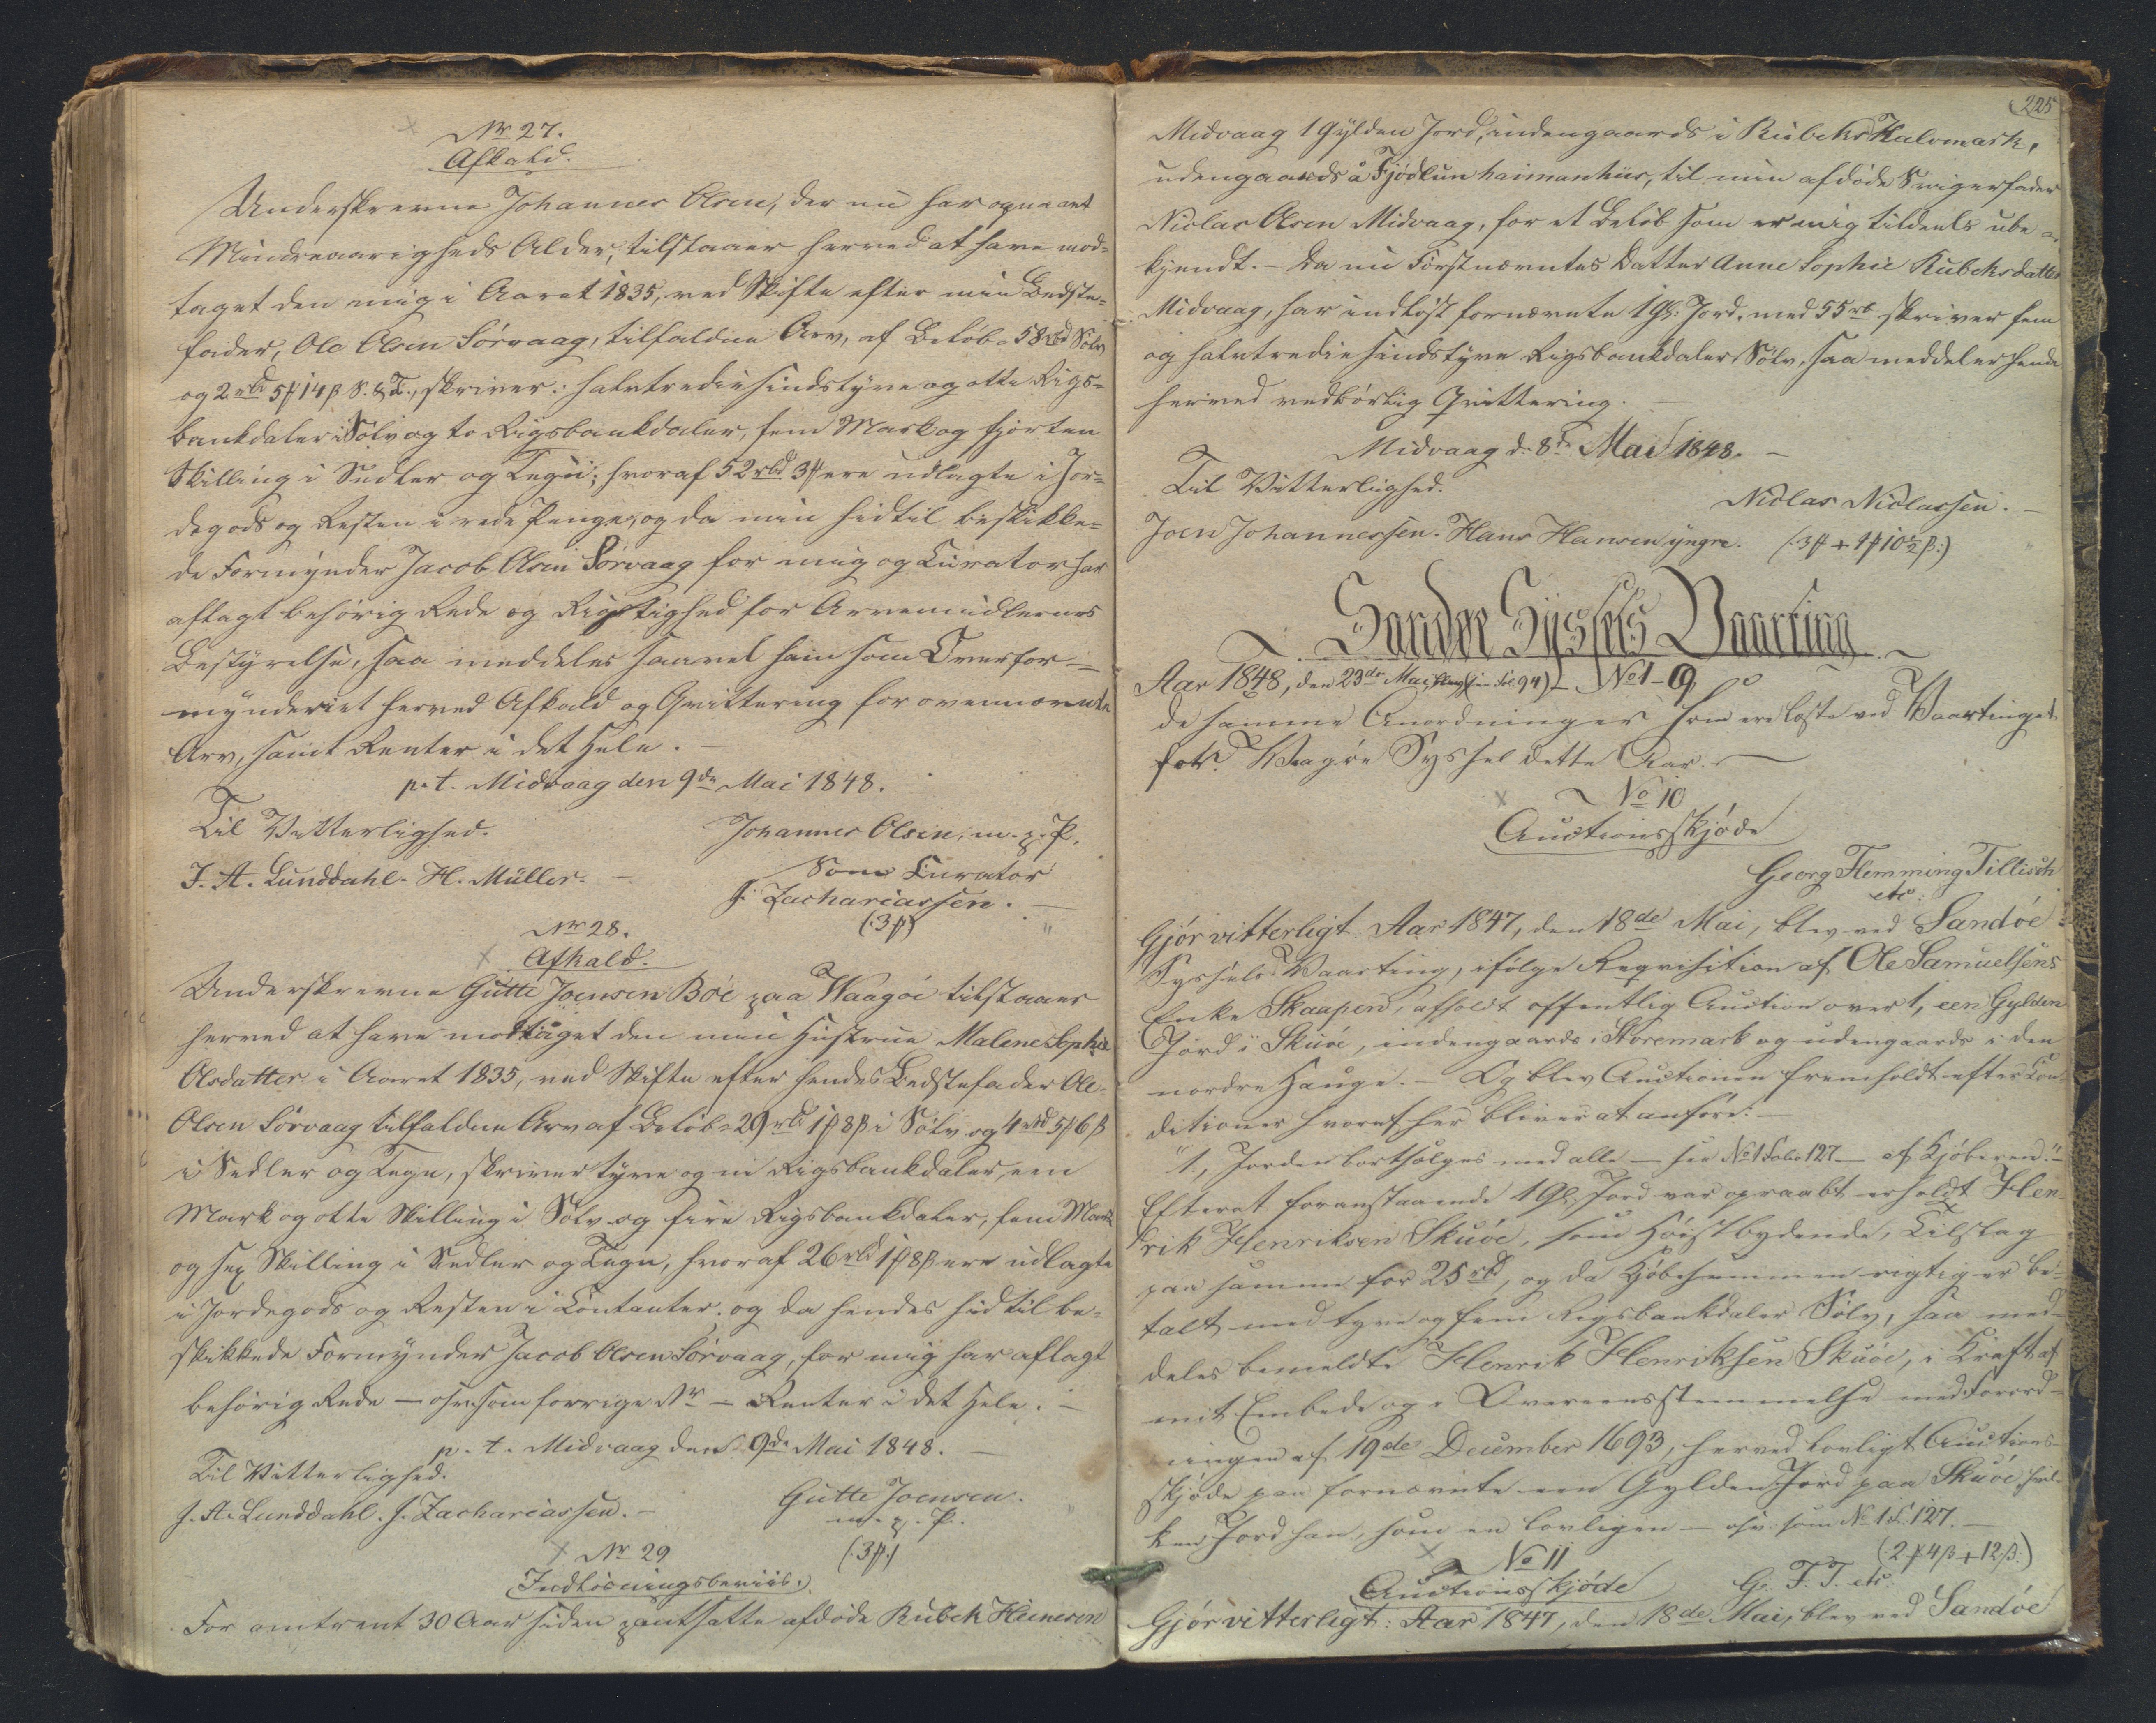 Nr 27.
Afkald.
Underskrevne Johannes Olsen, der nu har opnaaet
Mindreaarigheds Alder, tilstaaer herved at have mod-
taget den mig i Aaret 1835, ved Skifte efter min Bedste-
fader, Ole Olsen Sörvaag, tilfaldne Arv, af Belöb 58 rbd Sölv
og 2 rbd 5 ₰ 14 β S. & T., skriver: halvtrediesindstyve og otte Rigs-
bankdaler i Sölv og to Rigsbankdaler, fem Mark og fjorten
Skilling i Sedler og Tegn; hvoraf 52 rbd 3 ₰ ere udlagte i Jor-
degods og Resten i rede Penge, og da min hidtil beskikke-
de Formynder Jacob Olsen Sörvaag for mig og Curator har
aflagt behörig Rede og Rigtighed for Arvemidlernes
Bestyrelse, saa meddeles saavel ham som Overfor-
mynderiet herved Afkald og Qvittering for ovennævnte
Arv, samt Renter i det Hele. —
p. t. Midvaag den 9de Mai 1848.
Til Vitterlighed.
Johannes Olsen, m. p. P.
J. A. Lunddahl. H. Müller. —
Som Curator
J. Zachariassen. —
(3 ₰)
Nr 28.
Afkald.
Underskrevne Gutte Joensen Böe paa Waagöe tilstaaer
herved at have modtaget den min Hustrue Malene Sophie
Olsdatter i Aaret 1835, ved Skifte efter hendes Bedstefader Ole
Olsen Sörvaag tilfaldne Arv af Belöb 29 rbd 1 ₰ 8 β i Sölv og 4 rbd 5 ₰ 6 β
i Sedler og Tegn, skriver tyve og ni Rigsbankdaler, een
Mark og otte Skilling i Sölv og fire Rigsbankdaler, fem Mark
og sex Skilling i Sedler og Tegn, hvoraf 26 rbd 1 ₰ 8 β ere udlagte
i Jordegods og Resten i Contanter. og da hendes hidtil be-
skikkede Formynder Jacob Olsen Sörvaag, for mig har aflagt
behörig Rede — osv. som forrige Nr — Renter i det Hele. —
p. t. Midvaag den 9de Mai 1848. —
Til Vitterlighed.
J. A. Lunddahl. J. Zachariassen. —
Gutte Joensen.
m. p. P.
(3 ₰)
Nr 29
Indlösningsbeviis.
For omtrent 30 Aar siden pantsatte afdöde Rubek Heinesen
225
Midvaag 1 Gylden Jord, indengaards i Rubeks Kalvmark,
udengaards å Fjödlun haimanhus, til min afdöde Svigerfader
Niclas Olsen Midvaag, for et Belöb som er mig tildeels ube-
kjendt. — Da nu Förstnævntes Datter Anne Sophie Rubeksdatter
Midvaag, har indlöst fornævnte 1 Gl. Jord. med 55 rb skriver fem
og halvtrediesindstyve Rigsbankdaler Sölv, saa meddeler hende
herved vedbörlig Qvittering. —
Midvaag d. 8de Mai 1848. —
Til Vitterlighed.
Niclas Niclassen. —
Joen Johannessen. Hans Hansen yngre. (3 ₰ + 1 ₰ 10½ β.)
Sandöe Syssels Vaarting
Aar 1848, den 23de Mai, Fol 94) — No 1—9
de samme Anordninger som ere læste ved Vaartinget
for Waagöe Syssel dette Aar. —
No 10
Auctionsskjöde
Georg Flemming Tillisch
etc:
Gjör vitterligt: Aar 1847, den 18de Mai, blev ved Sandöe
Syssels Vaarting, ifölge Reqvisition af Ole Samuelsens
Enke Skaapen, afholdt offentlig Auction over 1, een Gylden
Jord i Skuöe, indengaards i Störemark og udengaards i den
nordre Hauge. — Og blev Auctionen fremholdt efter Con-
ditioner hvoraf her bliver at anföre: —
"1., Jorden bortsælges med alle — see No 1 Folio 127 — af Kjöberen."
Efterat foranstaaende 1 Gl. Jord var opraabt erholdt Hen-
rik Henriksen Skuöe, som Höistbydende, Tilslag
paa samme for 25 rbd, og da Kjöbesummen rigtig er be-
talt med tyve og fem Rigsbankdaler Sölv, saa med-
deles bemeldte Henrik Henriksen Skuöe, i Kraft af
mit Embede og i Overeensstemmelse med Forord-
ningen af 19de December 1693, herved lovligt Auctions-
skjöde paa fornævnte een Gylden Jord paa Skuöe, hvil-
ken Jord han, som en lovligen — osv. som No 1 F. 127. —
(2 ₰ 4 β + 12 β.)
No 11
Auctionsskjöde
G. F. T. etc.
Gjör vitterligt: Aar 1847, den 18de Mai, blev ved Sandöe